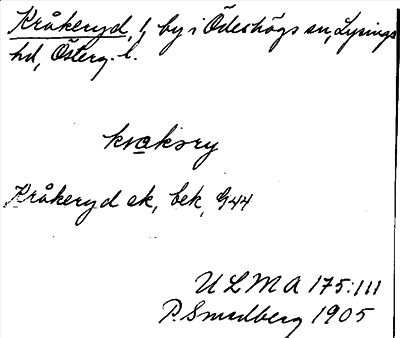 Kråkeryd, by i Ödeshögs sn, Lysings
hd, Österg. l.
krakery
Kråkeryd ek, bek, G44
ULMA 175:111
P. Smedberg 1905